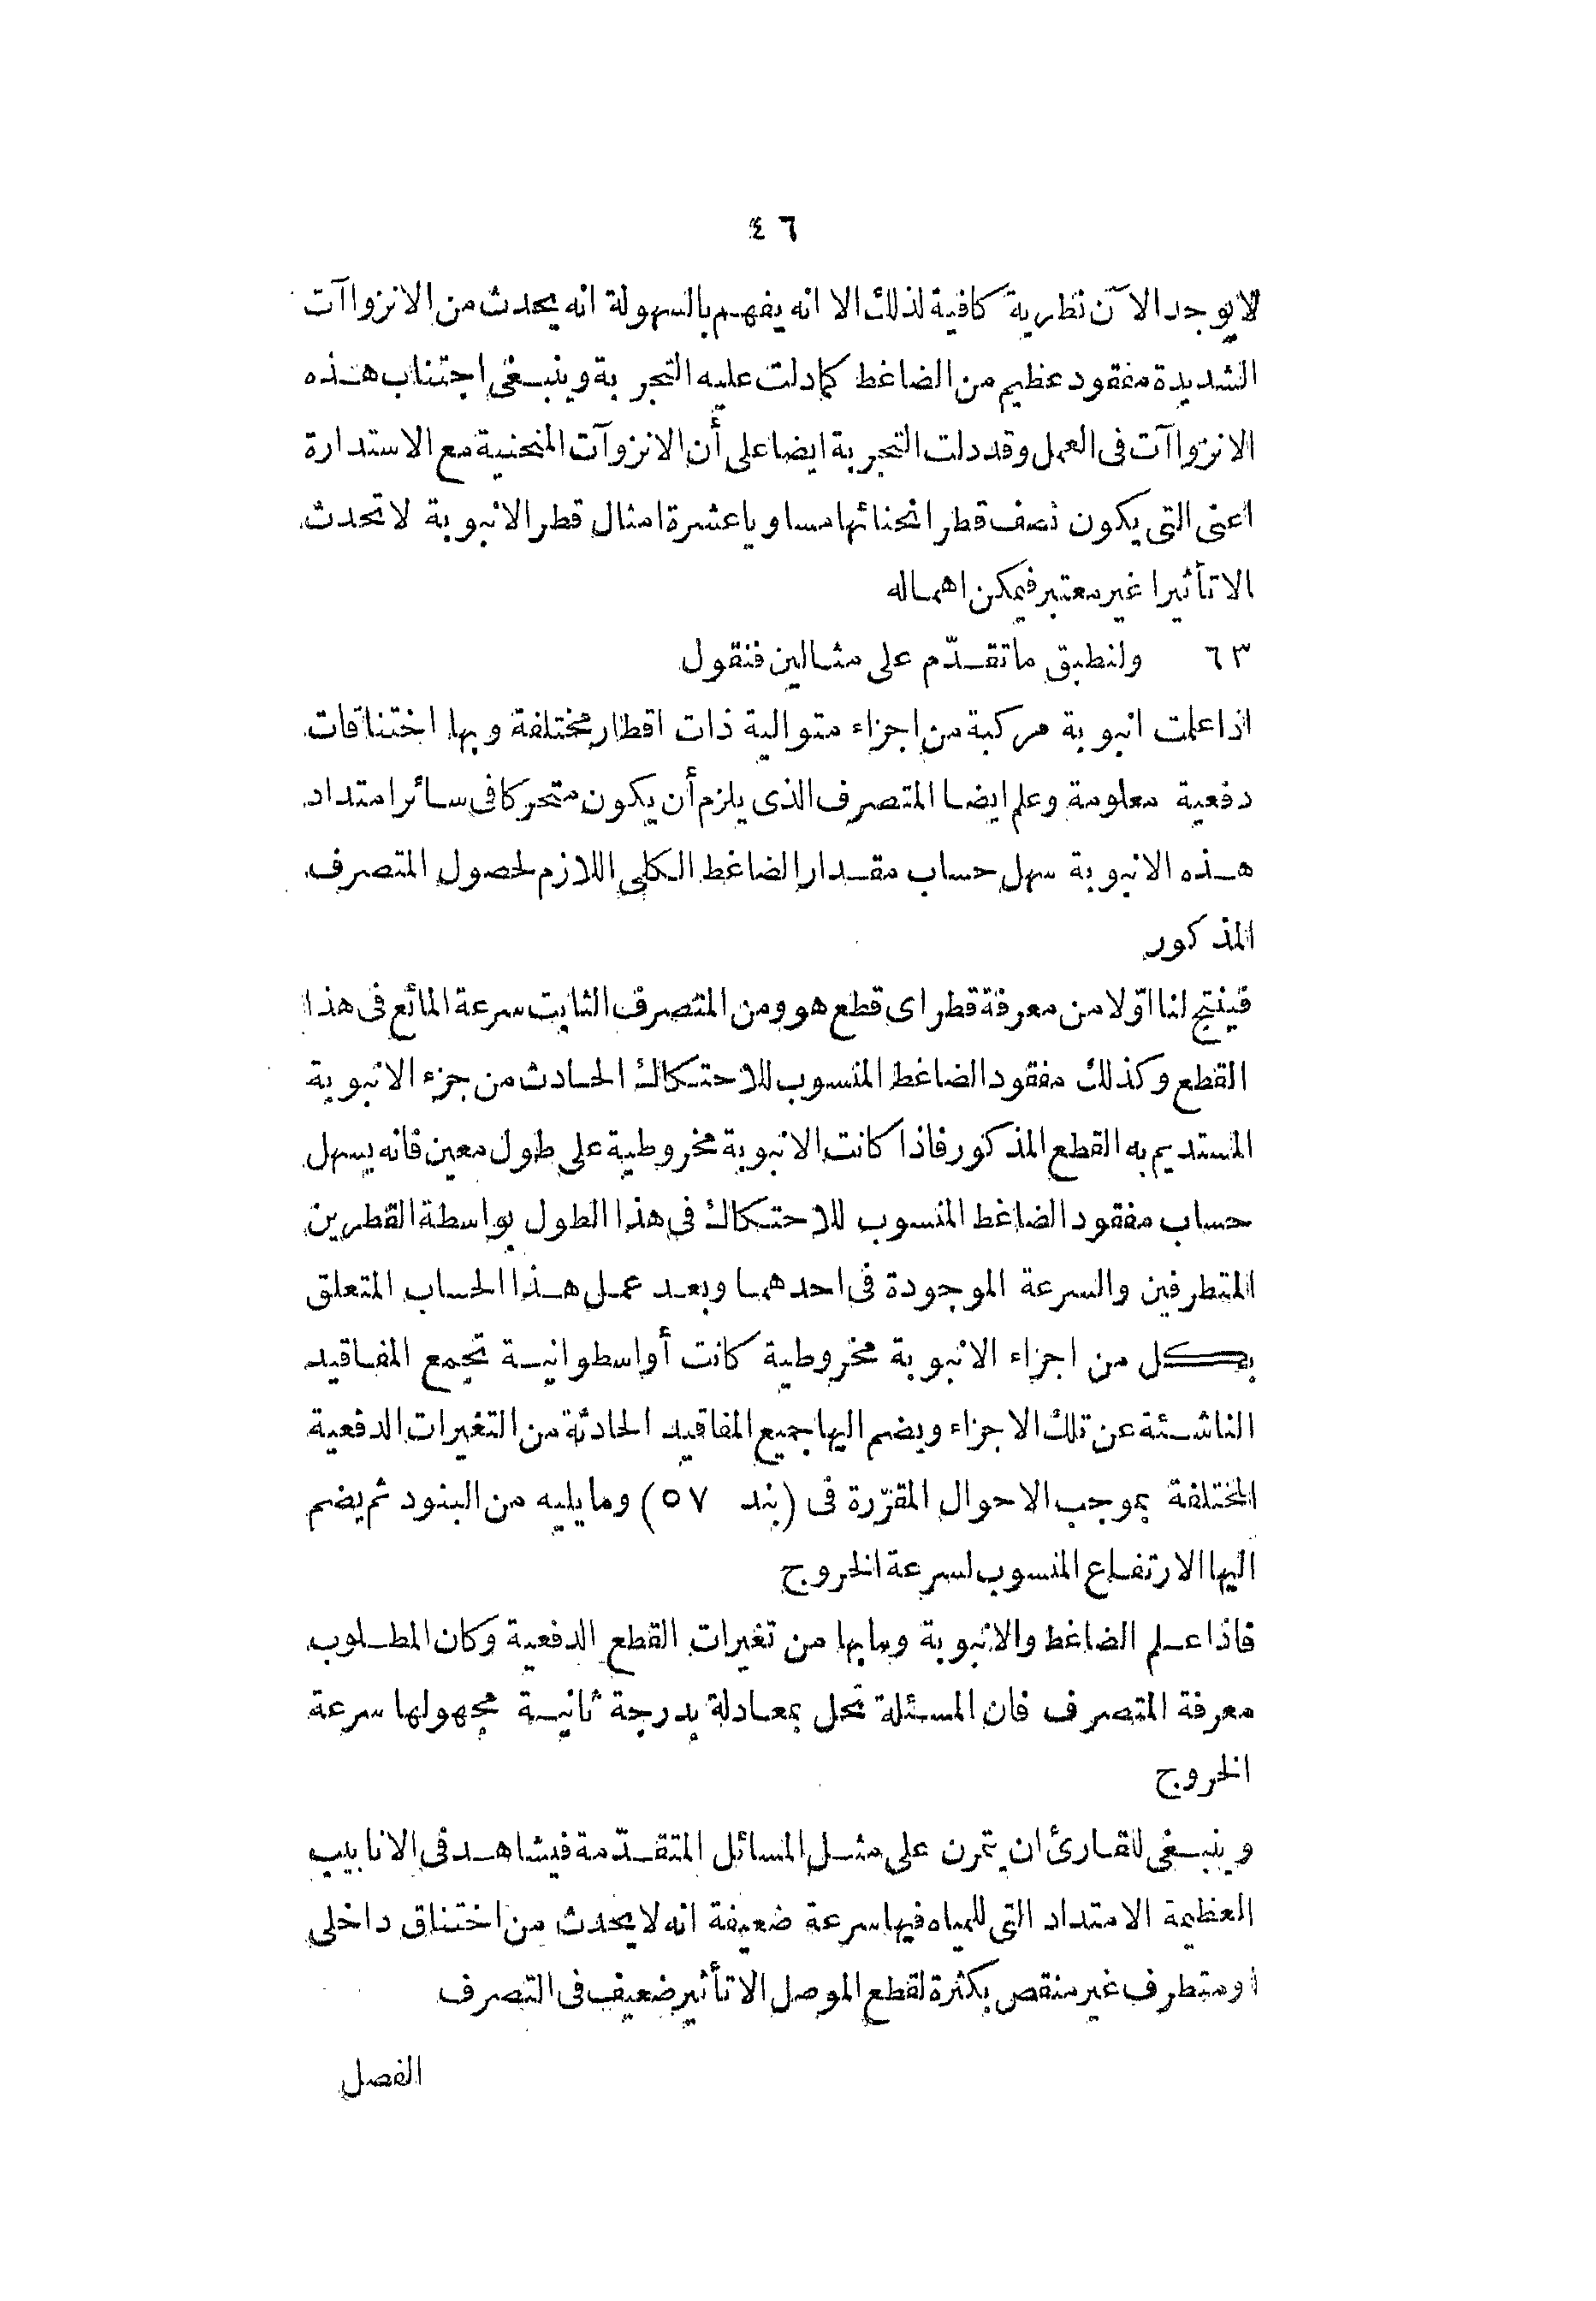 ٤٦
لا يوجد الآن نظرية كافية لذلك الا انه يفهم بالسهولة انه يحدث من الانزواآت
الشديدة مفقود عظيم من الضاغط كما دلت عليه التجربة وينبغى اجتناب هذه
الانزواآت فى العمل وقد دلت التجربة ايضا على أن الانزوآت المنحنية مع الاستدارة
اعنى التى يكون نصف قطر انحنائها مساويا عشرة امثال قطر الانبوبة لا تحدث
الا تأثيرا غير معتبر فيمكن اهماله
٦٣ ولنطبق ما تقدّم على مثالين فنقول
اذا علمت انبوبة مركبة من اجزاء متوالية ذات اقطار مختلفة وبها اختناقات
دفعية معلومة وعلم ايضا المتصرف الذى يلزم أن يكون متحركا فى سائر امتداد
هذه الانبوبة سهل حساب مقدار الضاغط الكلى اللازم لحصول المتصرف
المذكور
فينتج لنا اوّلا من معرفة قطر اى قطع هو ومن المتصرف الثابت سرعة المائع فى هذا
القطع وكذلك مفقود الضاغط المنسوب للاحتكاك الحادث من جزء الانبوبة
المستديم به القطع المذكور فاذا كانت الانبوبة مخروطية على طول معين فانه يسهل
حساب مفقود الضاغط المنسوب للاحتكاك فى هذا الطول بواسطة القطرين
المتطرفين والسرعة الموجودة فى احدهما وبعد عمل هذا الحساب المتعلق
بكل من اجزاء الانبوبة مخروطية كانت أو اسطوانية تجمع المفاقيد
الناشئة عن تلك الاجزاء ويضم اليها جميع المفاقيد الحادثة من التغيرات الدفعية
المختلفة بموجب الاحوال المقرّرة فى (بند ٥٧) وما يليه من البنود ثم يضم
اليها الارتفاع المنسوب لسرعة الخروج
فاذا علم الضاغط والانبوبة وما بها من تغيرات القطع الدفعية وكان المطلوب
معرفة المتصرف فان المسئلة تحل بمعادلة بدرجة ثانية مجهولها سرعة
الخروج
وينبغى للقارئ ان يتمرن على مثل المسائل المتقدّمة فيشاهد فى الانابيب
العظيمة الامتداد التى للمياه فيها سرعة ضعيفة انه لا يحدث من اختناق داخلى
او متطرف غير منقص بكثرة لقطع الموصل الا تأثير ضعيف فى التصرف
الفصل